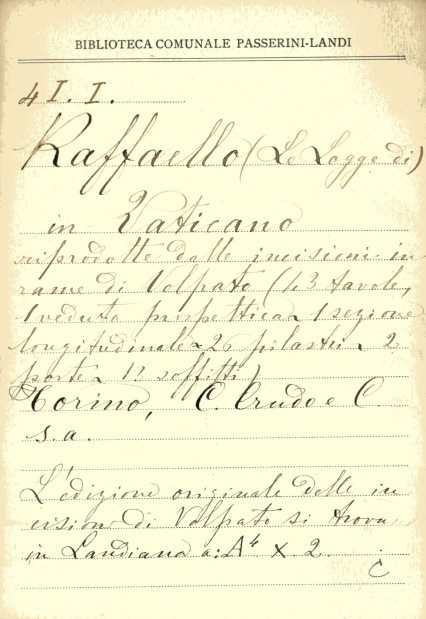 BIBLIOTECA COMUNALE PASSERINI-LANDI
4 I. I.
Raffaello (Le Logge di)
in Vaticano
riprodotte dalle incisioni in
rame di Volpato (43 tavole,
1 veduta prospettica 1 sezione
longitudinale 26 pilastri 2
porte 13 soffitti)
Torino, C. Crudo e C.
s.a.
L'edizione originale delle in
cisioni di Volpato si trova
in Landiana a: A4 X 2.
C